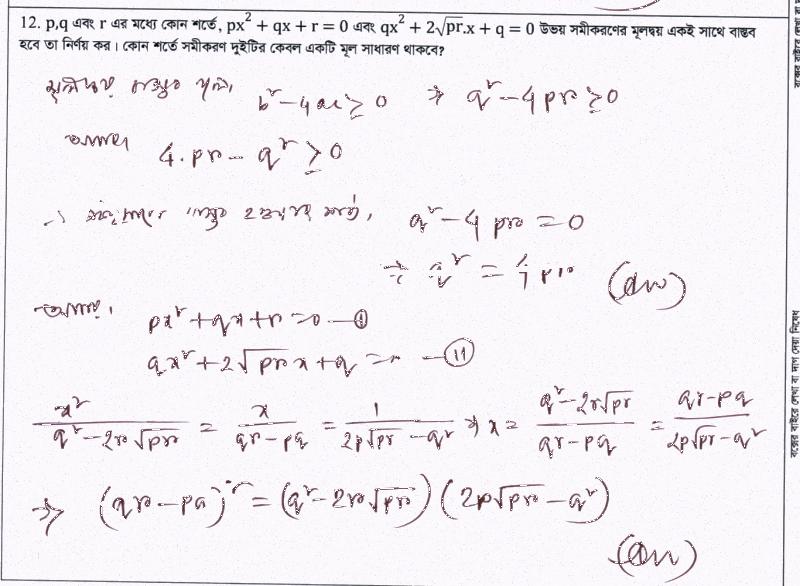 12. p,q এবং r এর মধ্যে কোন শর্তে, px² + qx + r = 0 এবং qx² + 2√pr.x + q = 0 উভয় সমীকরণের মূলদ্বয় একই সাথে বাস্তব
হবে তা নির্ণয় কর। কোন শর্তে সমীকরণ দুইটির কেবল একটি মূল সাধারণ থাকবে?
মূলদ্বয় বাস্তব হলে, b² - 4ac ≥ 0 ⇒ q² - 4pr ≥ 0
আবার 4.pr - q² ≥ 0
∴ বাস্তব হওয়ার শর্ত, q² - 4pr = 0
⇒ q² = 4pr (Ans)
আবার, px² + qx + r = 0 — (i)
qx² + 2√pr x + q = 0 — (ii)
x²/(q² - 2r√pr) = x/(qr - pq) = 1/(2p√pr - q²) ⇒ x = (q² - 2r√pr)/(qr - pq) = (qr - pq)/(2p√pr - q²)
⇒ (qr - pq)² = (q² - 2r√pr)(2p√pr - q²)
(Ans)